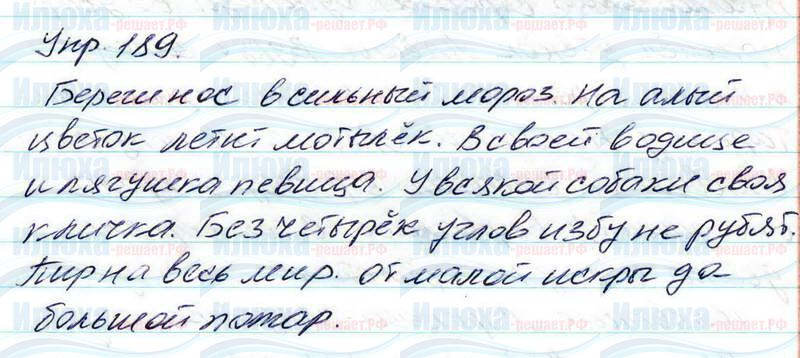 Упр. 189.
Береги нос в сильный мороз. На алый
цветок летит мотылёк. В своей водице
и лягушка певица. У всякой собаки своя
кличка. Без четырёх углов избу не рубят.
Пир на весь мир. От малой искры да
большой пожар.